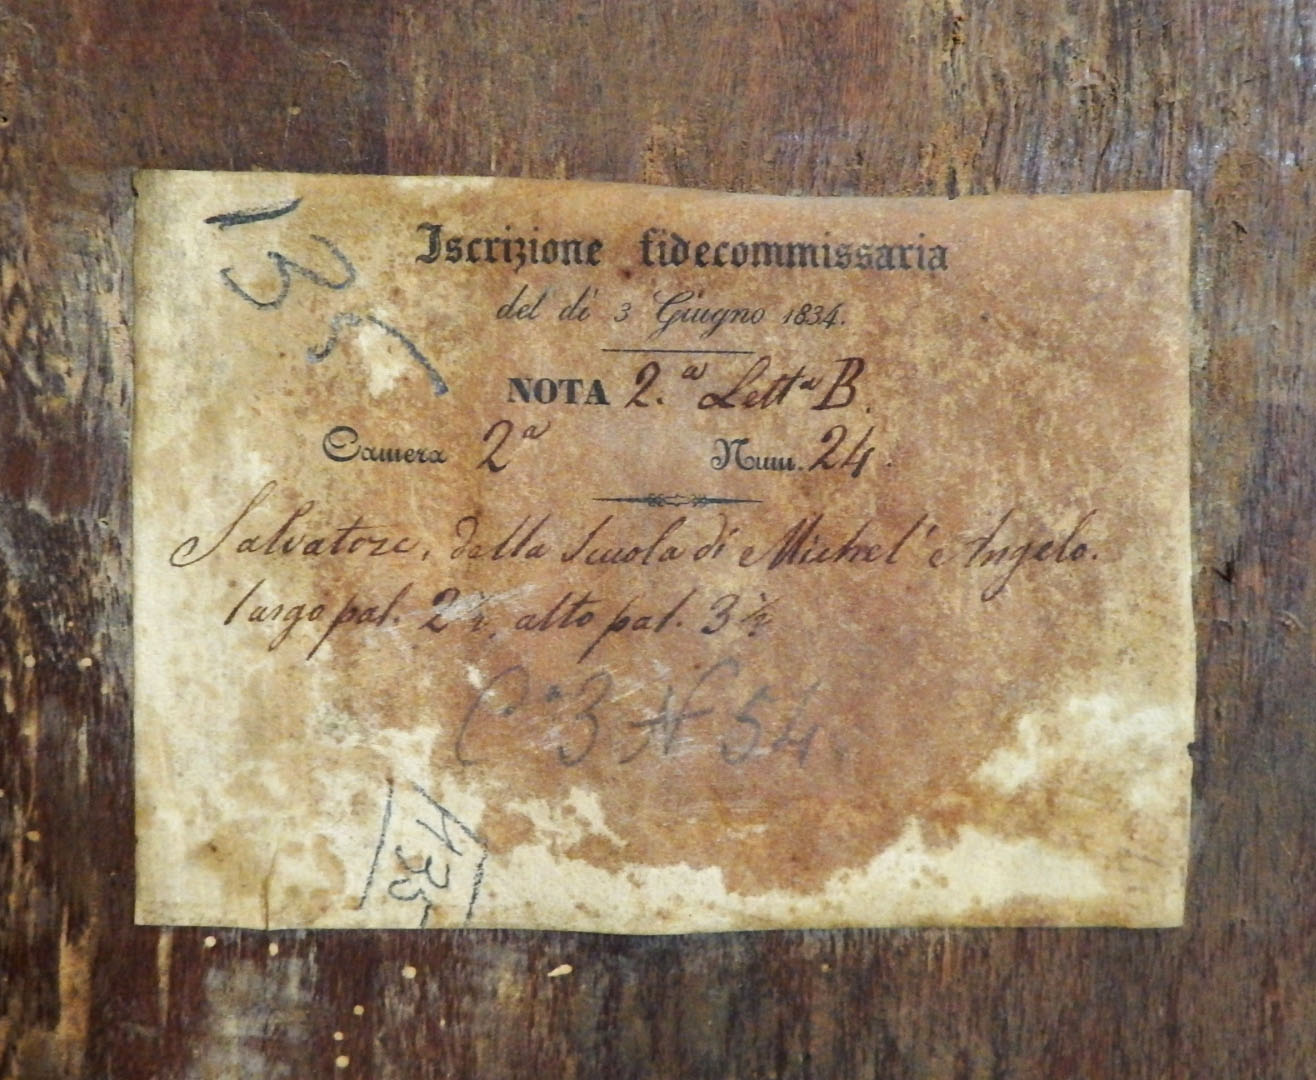 135
Iscrizione fidecommissaria
del dì 3 Giugno 1834.
NOTA 2.ª Lettª B.
Camera 2ª Num. 24.
Salvatore, della Scuola di Michel'Angelo.
largo pal. 2½, alto pal. 3½
C.ª 3 N 54.